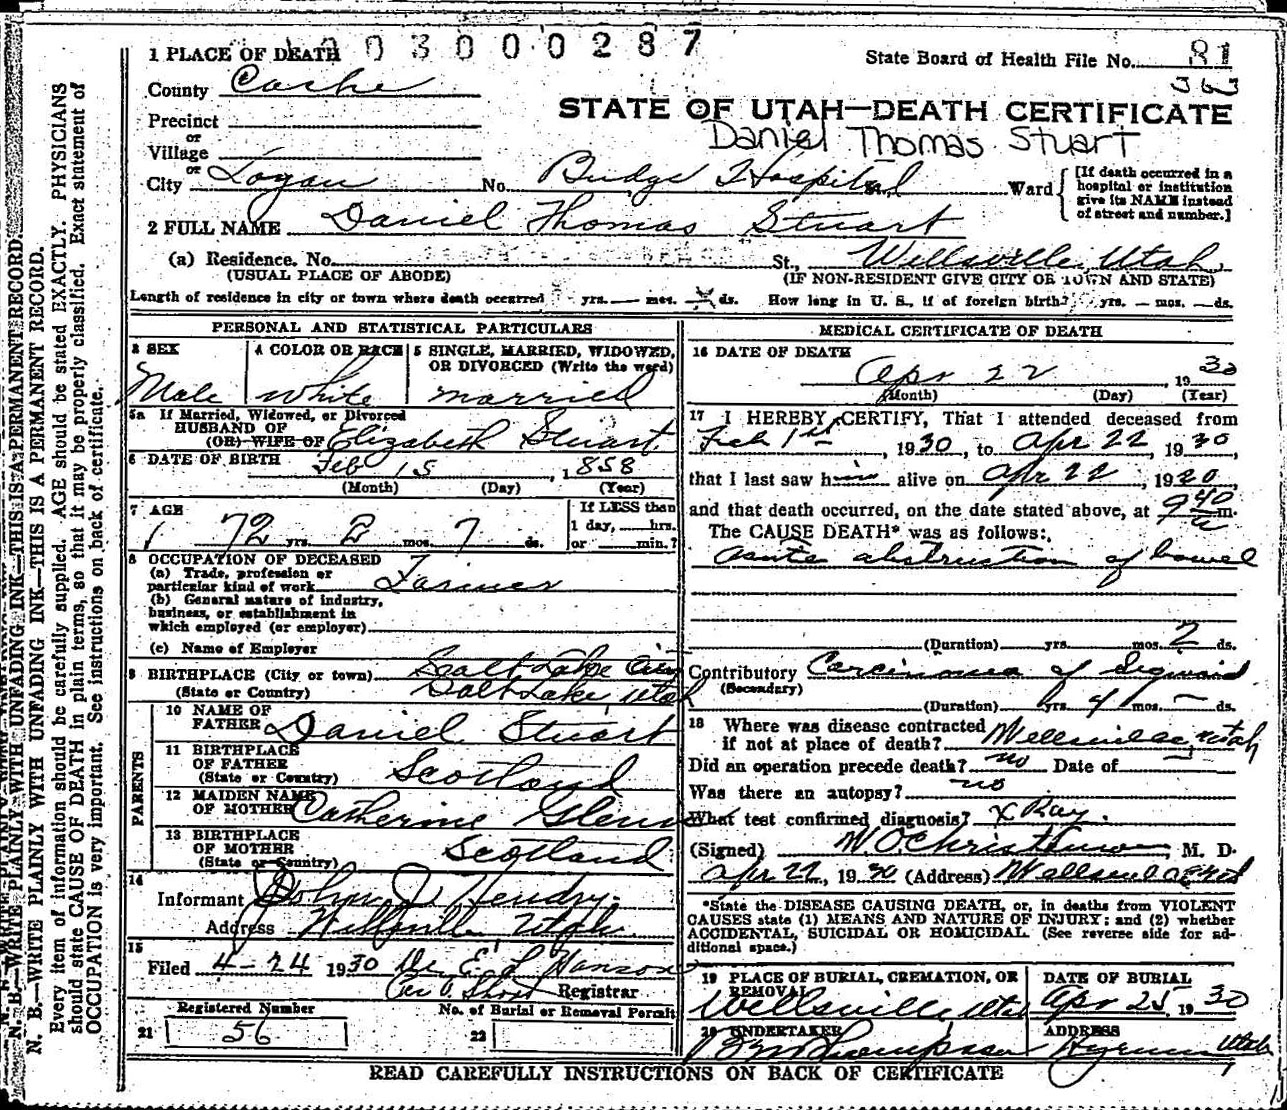 1 PLACE OF DEATH 003000287
State Board of Health File No. 81
County Cache
STATE OF UTAH—DEATH CERTIFICATE
Precinct
or
Daniel Thomas Stuart
Village
or
City Logan No. Budge Hospital Ward
[If death occurred in a
hospital or institution
give its NAME instead
of street and number.]
2 FULL NAME Daniel Thomas Stuart
(a) Residence. No. St., Wellsville Utah
(USUAL PLACE OF ABODE) (IF NON-RESIDENT GIVE CITY OR TOWN AND STATE)
Length of residence in city or town where death occurred yrs. — mos. ds. How long in U. S., if of foreign birth? yrs. — mos. — ds.
PERSONAL AND STATISTICAL PARTICULARS
3 SEX 4 COLOR OR RACE 5 SINGLE, MARRIED, WIDOWED,
OR DIVORCED (Write the word)
Male white married
5a If Married, Widowed, or Divorced
HUSBAND OF
(OR) WIFE OF Elizabeth Stuart
6 DATE OF BIRTH Feb 15, 1858
(Month) (Day) (Year)
7 AGE If LESS than
72 yrs. 2 mos. 7 ds. 1 day, hrs.
or min.?
8 OCCUPATION OF DECEASED
(a) Trade, profession or
particular kind of work Farmer
(b) General nature of industry,
business, or establishment in
which employed (or employer)
(c) Name of Employer
9 BIRTHPLACE (City or town) Salt Lake City
(State or Country) Salt Lake, Utah
PARENTS
10 NAME OF
FATHER Daniel Stuart
11 BIRTHPLACE
OF FATHER
(State or Country) Scotland
12 MAIDEN NAME
OF MOTHER Catherine Glenn
13 BIRTHPLACE
OF MOTHER
(State or Country) Scotland
14
Informant John J Hendry
Address Wellsville Utah
15
Filed 4-24 1930 E. L. Hanson
Registrar
Registered Number No. of Burial or Removal Permit
21 56 22
MEDICAL CERTIFICATE OF DEATH
16 DATE OF DEATH
Apr 22, 1930
(Month) (Day) (Year)
17 I HEREBY CERTIFY, That I attended deceased from
Feb 1st, 1930, to Apr 22, 1930,
that I last saw him alive on Apr 22, 1930,
and that death occurred, on the date stated above, at 9 40 m.
The CAUSE DEATH* was as follows:
acute obstruction of bowel
(Duration) yrs. mos. 2 ds.
Contributory Carcinoma of Sigmoid
(Secondary)
(Duration) yrs. 4 mos. — ds.
18 Where was disease contracted
if not at place of death? Wellsville, Utah
Did an operation precede death? no Date of
Was there an autopsy? no
What test confirmed diagnosis? X Ray.
(Signed) W.O. Christensen, M. D.
Apr 22, 1930 (Address) Wellsville
*State the DISEASE CAUSING DEATH, or, in deaths from VIOLENT
CAUSES state (1) MEANS AND NATURE OF INJURY; and (2) whether
ACCIDENTAL, SUICIDAL OR HOMICIDAL. (See reverse side for ad-
ditional space.)
19 PLACE OF BURIAL, CREMATION, OR
REMOVAL
Wellsville Utah
DATE OF BURIAL
Apr 25, 1930
20 UNDERTAKER ADDRESS
Thompson Hyrum, Utah
READ CAREFULLY INSTRUCTIONS ON BACK OF CERTIFICATE
N. B.—WRITE PLAINLY WITH UNFADING INK—THIS IS A PERMANENT RECORD.
N. B.—WRITE PLAINLY WITH UNFADING INK—THIS IS A PERMANENT RECORD.
Every item of information should be carefully supplied. AGE should be stated EXACTLY. PHYSICIANS
should state CAUSE OF DEATH in plain terms, so that it may be properly classified. Exact statement of
OCCUPATION is very important. See instructions on back of certificate.